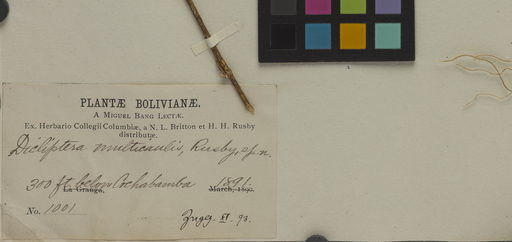 PLANTÆ BOLIVIANÆ.
A MIGUEL BANG LECTÆ.
Ex. Herbario Collegii Columbiæ, a N. L. Britton et H. H. Rusby
distributæ.
Dicliptera multicaulis, Rusby, sp. n.
300 ft. below Cochabamba 1891.
La Granga, March, 1890.
No. 1001
Zugeg. XI. 93.